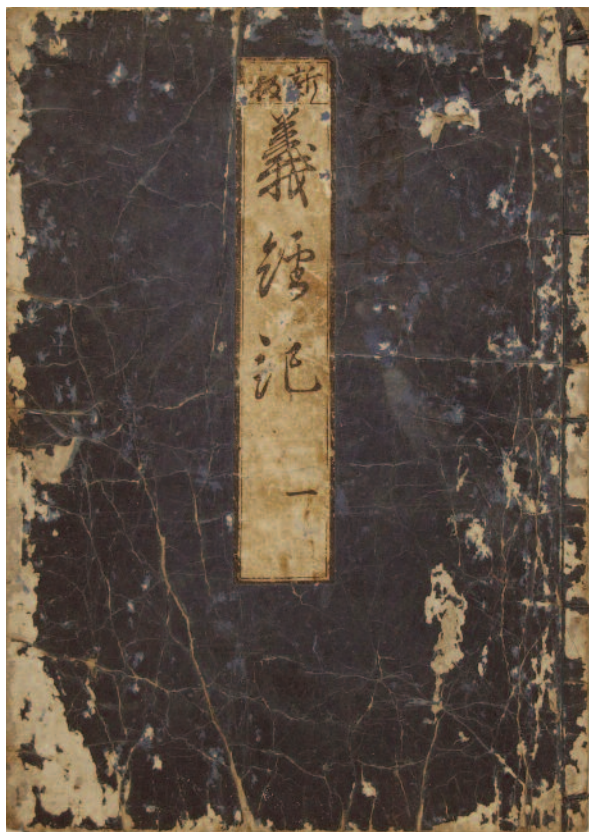 新板
義經記
一